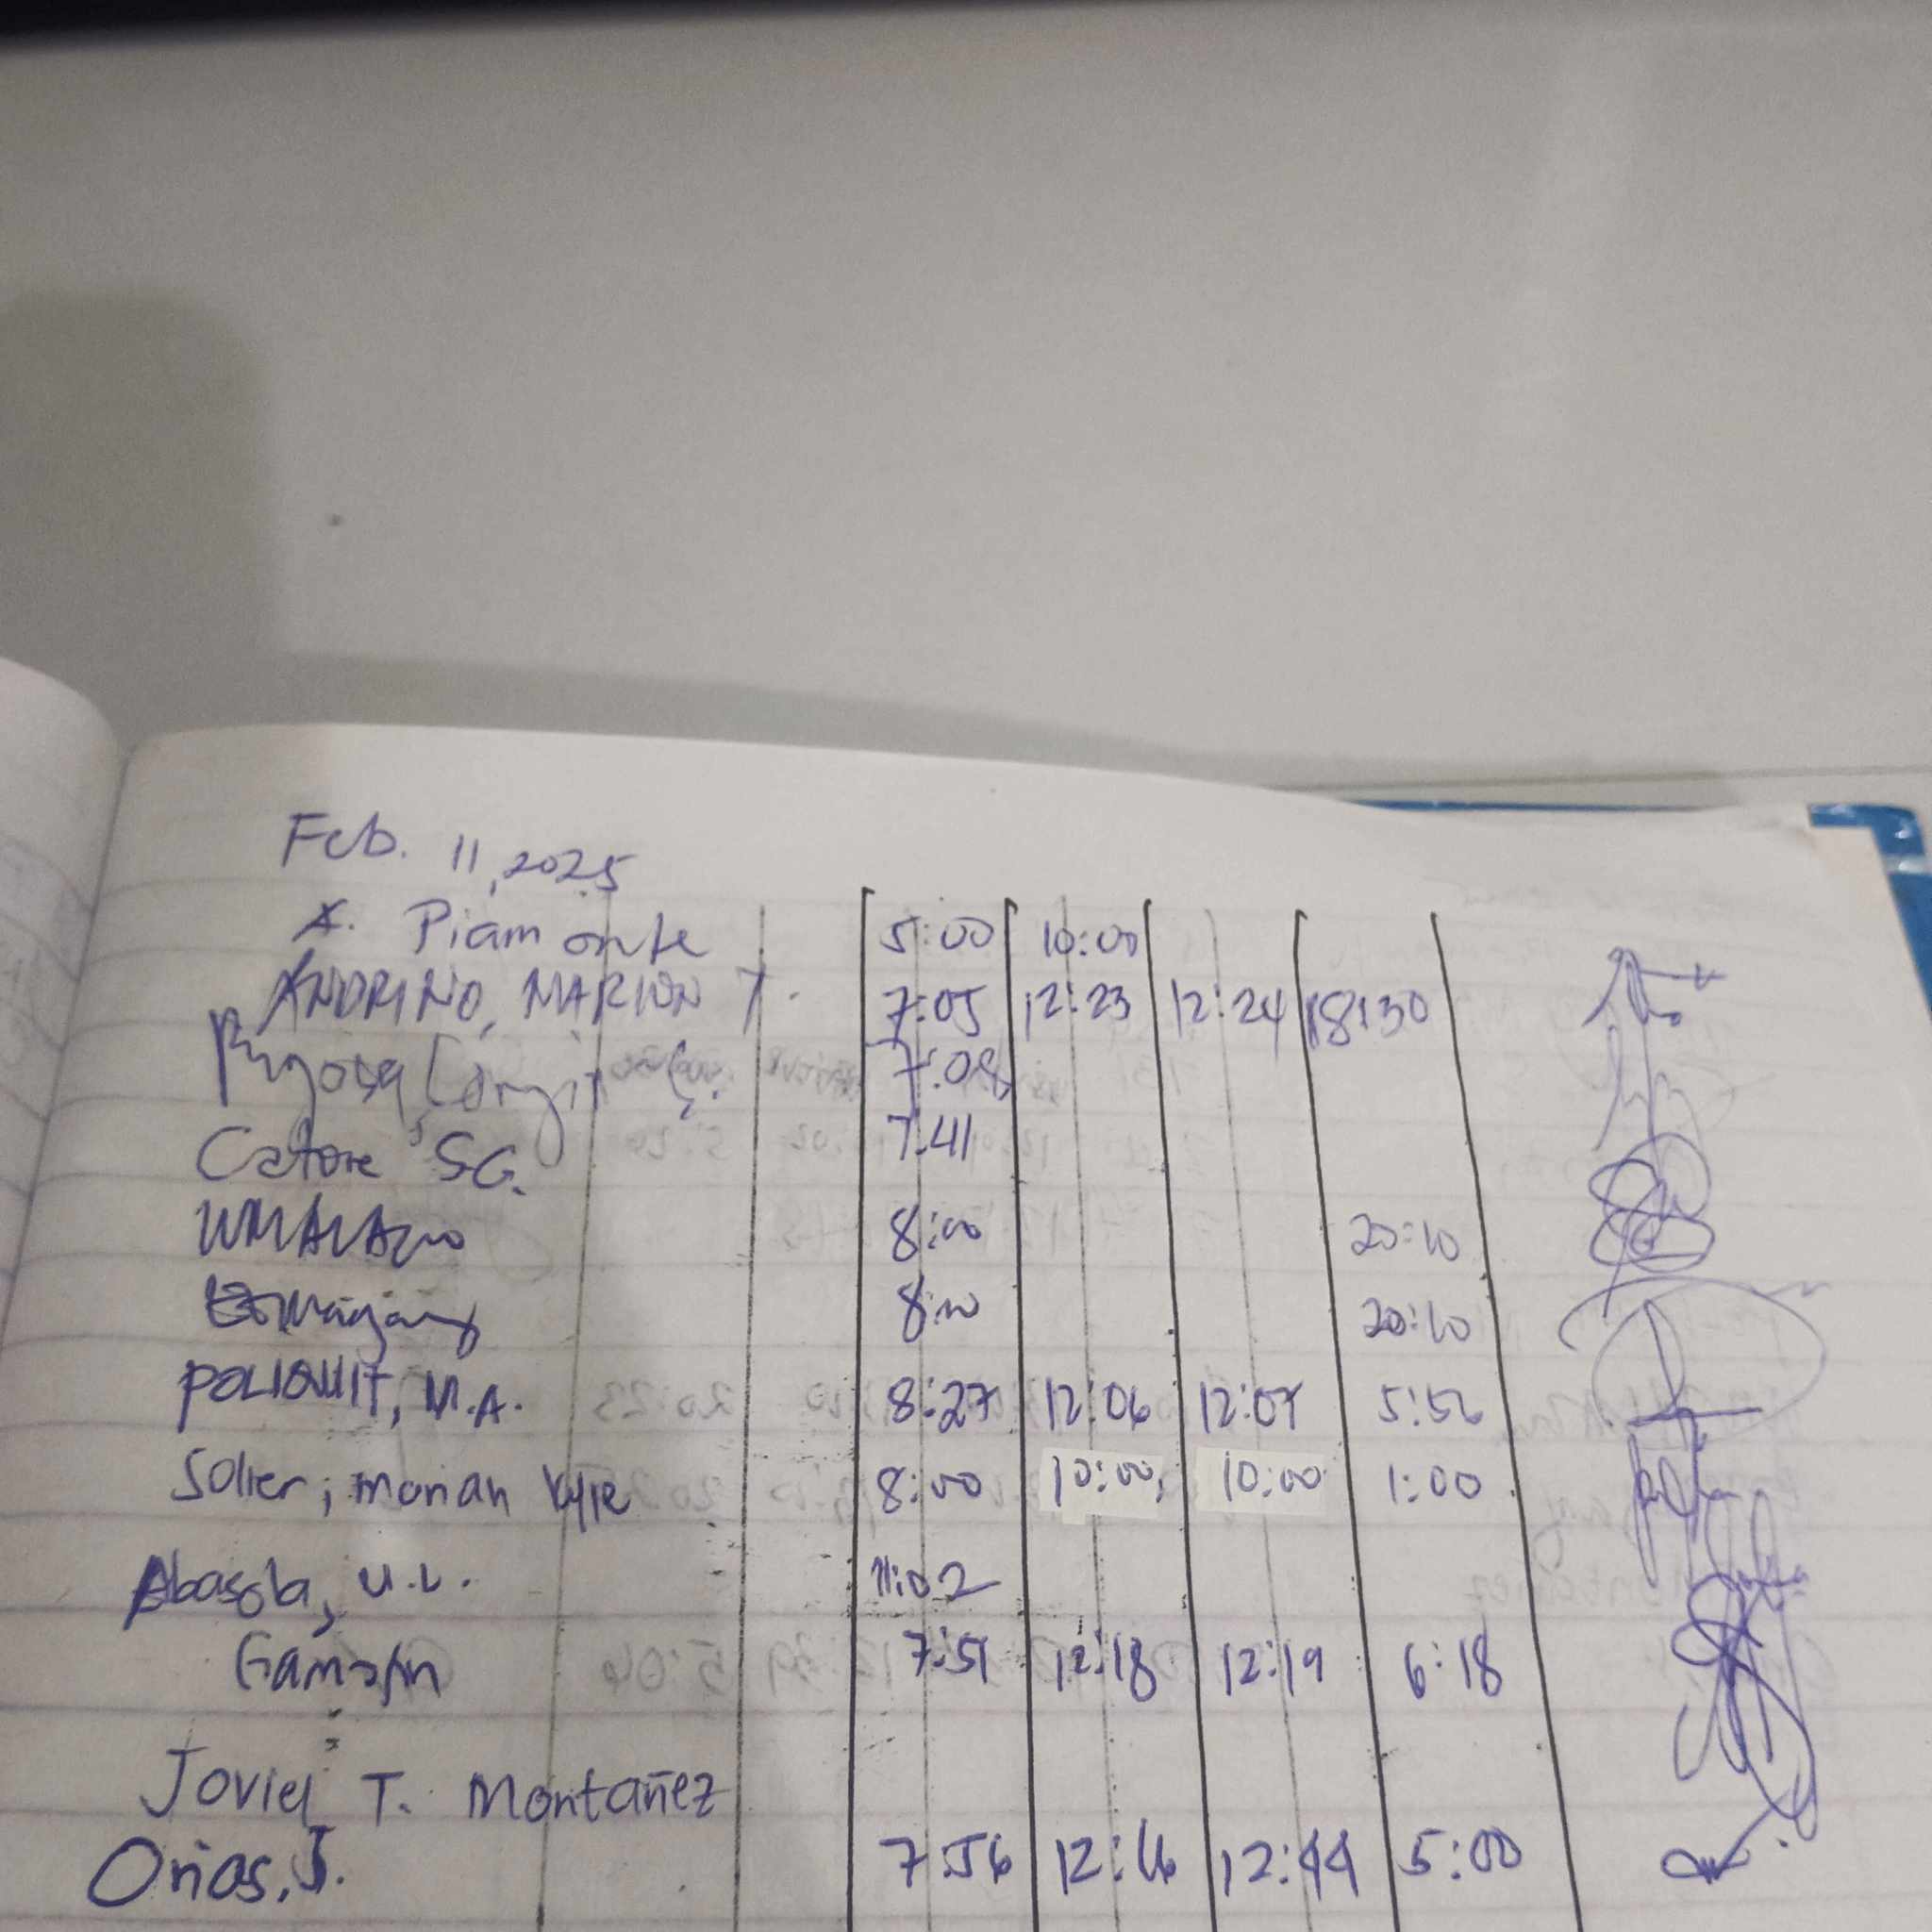 Feb. 11, 2025
A. Piamonte 5:00 10:00
ANDRINO, MARION T. 7:05 12:23 12:24 18:30
7:08
Catore SG. 7:41
8:00 20:10
8:10 20:10
POLIQUIT, M.A. 8:27 12:06 12:07 5:56
Solier, marian kyle 8:00 10:00 10:00 1:00
Abasola, M.L. 11:02
7:51 12:18 12:19 6:18
Joviel T. Montañez
Orias, J. 7:56 12:16 12:44 5:00